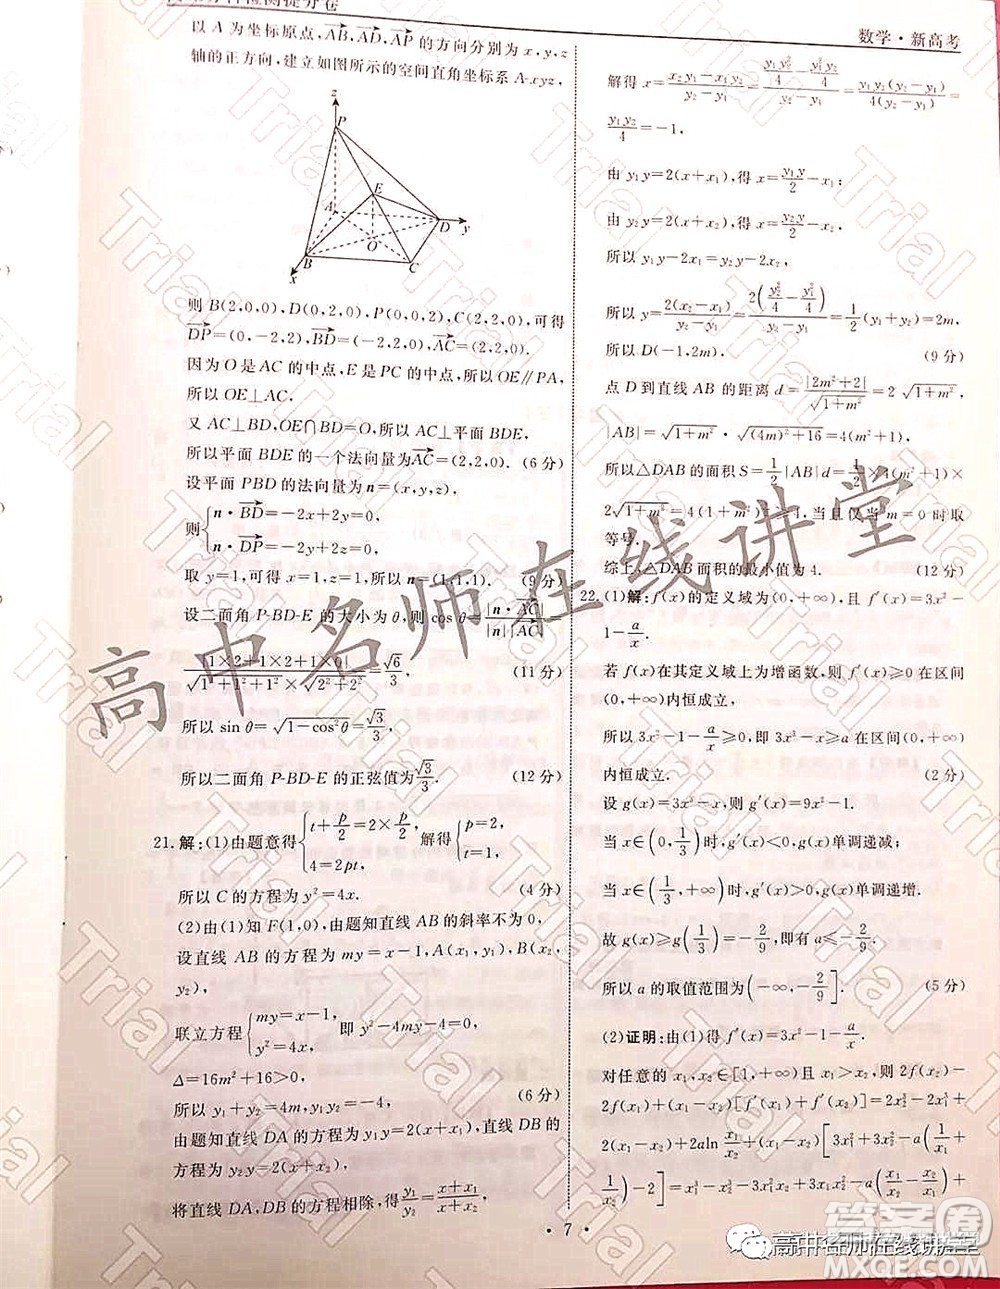 数学·新高考
以A为坐标原点,AB,AD,AP的方向分别为x,y,z
轴的正方向,建立如图所示的空间直角坐标系A-xyz,
z
P
E
A
D
y
O
B
C
x
则B(2,0,0),D(0,2,0),P(0,0,2),C(2,2,0),可得
DP=(0,-2,2),BD=(-2,2,0),AC=(2,2,0).
因为O是AC的中点,E是PC的中点,所以OE∥PA,
所以OE⊥AC.
又AC⊥BD,OE∩BD=O,所以AC⊥平面BDE,
所以平面BDE的一个法向量为AC=(2,2,0). (6分)
设平面PBD的法向量为n=(x,y,z),
则{n·BD=-2x+2y=0,
n·DP=-2y+2z=0,
取y=1,可得n=(1,1,1). (9分)
设二面角P-BD-E的大小为θ,则cosθ=|n·AC|/|n||AC|=
|1×2+1×2+1×0|/(√(1²+1²+1²)×√(2²+2²))=√6/3, (11分)
所以sinθ=√(1-cos²θ)=√3/3,
所以二面角P-BD-E的正弦值为√3/3. (12分)
21.解:(1)由题意得{t+p/2=2×p/2, 4=2pt, 解得{p=2, t=1,
所以C的方程为y²=4x. (4分)
(2)由(1)知F(1,0),由题知直线AB的斜率不为0,
设直线AB的方程为my=x-1,A(x₁,y₁),B(x₂,
y₂),
联立方程{my=x-1, y²=4x, 即y²-4my-4=0,
Δ=16m²+16>0, (6分)
所以y₁+y₂=4m,y₁y₂=-4,
由题知直线DA的方程为y₁y=2(x+x₁),直线DB的
方程为y₂y=2(x+x₂),
将直线DA,DB的方程相除,得y₁/y₂=(x+x₁)/(x+x₂),
解得x=(x₂y₁-x₁y₂)/(y₂-y₁)=(y₁y₂²/4-y₂y₁²/4)/(y₂-y₁)=y₁y₂(y₂-y₁)/4(y₂-y₁)=
y₁y₂/4=-1,
由y₁y=2(x+x₁),得x=y₁y/2-x₁;
由y₂y=2(x+x₂),得x=y₂y/2-x₂,
所以y₁y-2x₁=y₂y-2x₂,
所以y=2(x₂-x₁)/(y₂-y₁)=2(y₂²/4-y₁²/4)/(y₂-y₁)=1/2(y₁+y₂)=2m,
所以D(-1,2m). (9分)
点D到直线AB的距离d=|2m²+2|/√(1+m²)=2√(1+m²),
|AB|=√(1+m²)·√((4m)²+16)=4(1+m²),
所以△DAB的面积S=1/2|AB|d=1/2×4(1+m²)×
2√(1+m²)=4(1+m²)√(1+m²)≥4,当且仅当m=0时取
等号.
综上,△DAB面积的最小值为4. (12分)
22.(1)解:f(x)的定义域为(0,+∞),且f′(x)=3x²-
1-a/x.
若f(x)在其定义域上为增函数,则f′(x)≥0在区间
(0,+∞)内恒成立,
所以3x²-1-a/x≥0,即3x³-x≥a在区间(0,+∞)
内恒成立. (2分)
设g(x)=3x³-x,则g′(x)=9x²-1.
当x∈(0,1/3)时,g′(x)<0,g(x)单调递减;
当x∈(1/3,+∞)时,g′(x)>0,g(x)单调递增.
故g(x)≥g(1/3)=-2/9,即有a≤-2/9,
所以a的取值范围为(-∞,-2/9]. (5分)
(2)证明:由(1)得f′(x)=3x²-1-a/x.
对任意的x₁,x₂∈[1,+∞),且x₁>x₂,则2f(x₂)
-2f(x₁)+(x₁-x₂)[f′(x₁)+f′(x₂)]=2x₂³-2x₁³+
2(x₁-x₂)+2aln x₁/x₂+(x₁-x₂)[3x₁²+3x₂²-a(1/x₁+
1/x₂)-2]=x₁³-x₂³-3x₁²x₂+3x₁x₂²-a(x₁/x₂-x₂/x₁)
·7·
高中名师在线讲堂
Trial
高中名师在线讲堂
答案卷
MXQE.COM